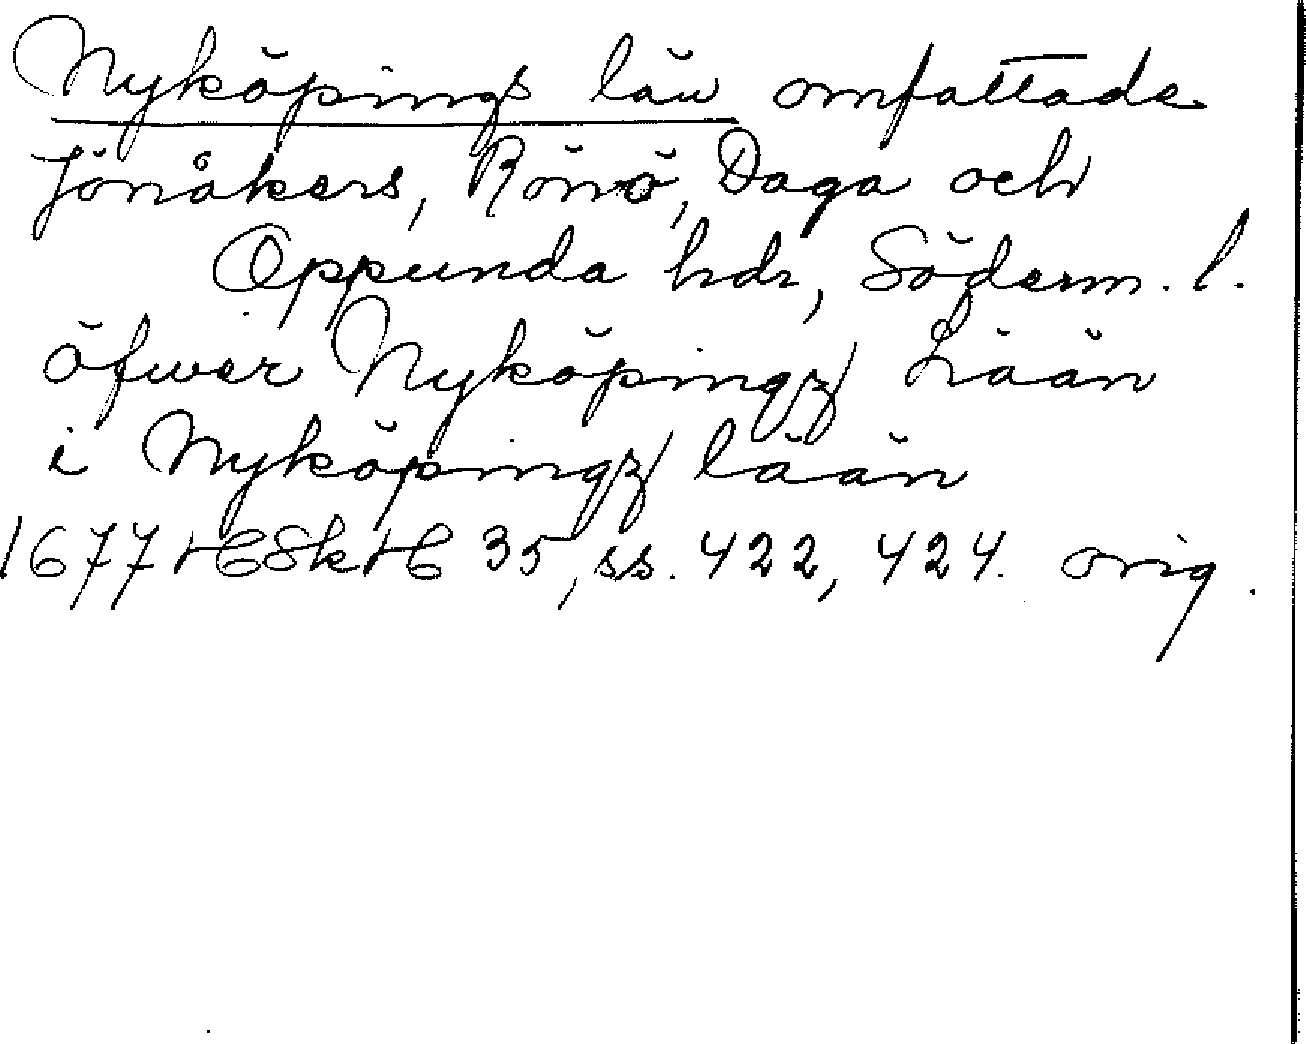 Nyköpings län omfattade
Jönåkers, Rönö, Daga och
Oppunda hdr, Söderm. l.
öfwer Nyköpingz Lään
i Nyköpingz lään
1677 HCSkHC 35, ss. 422, 424. orig.